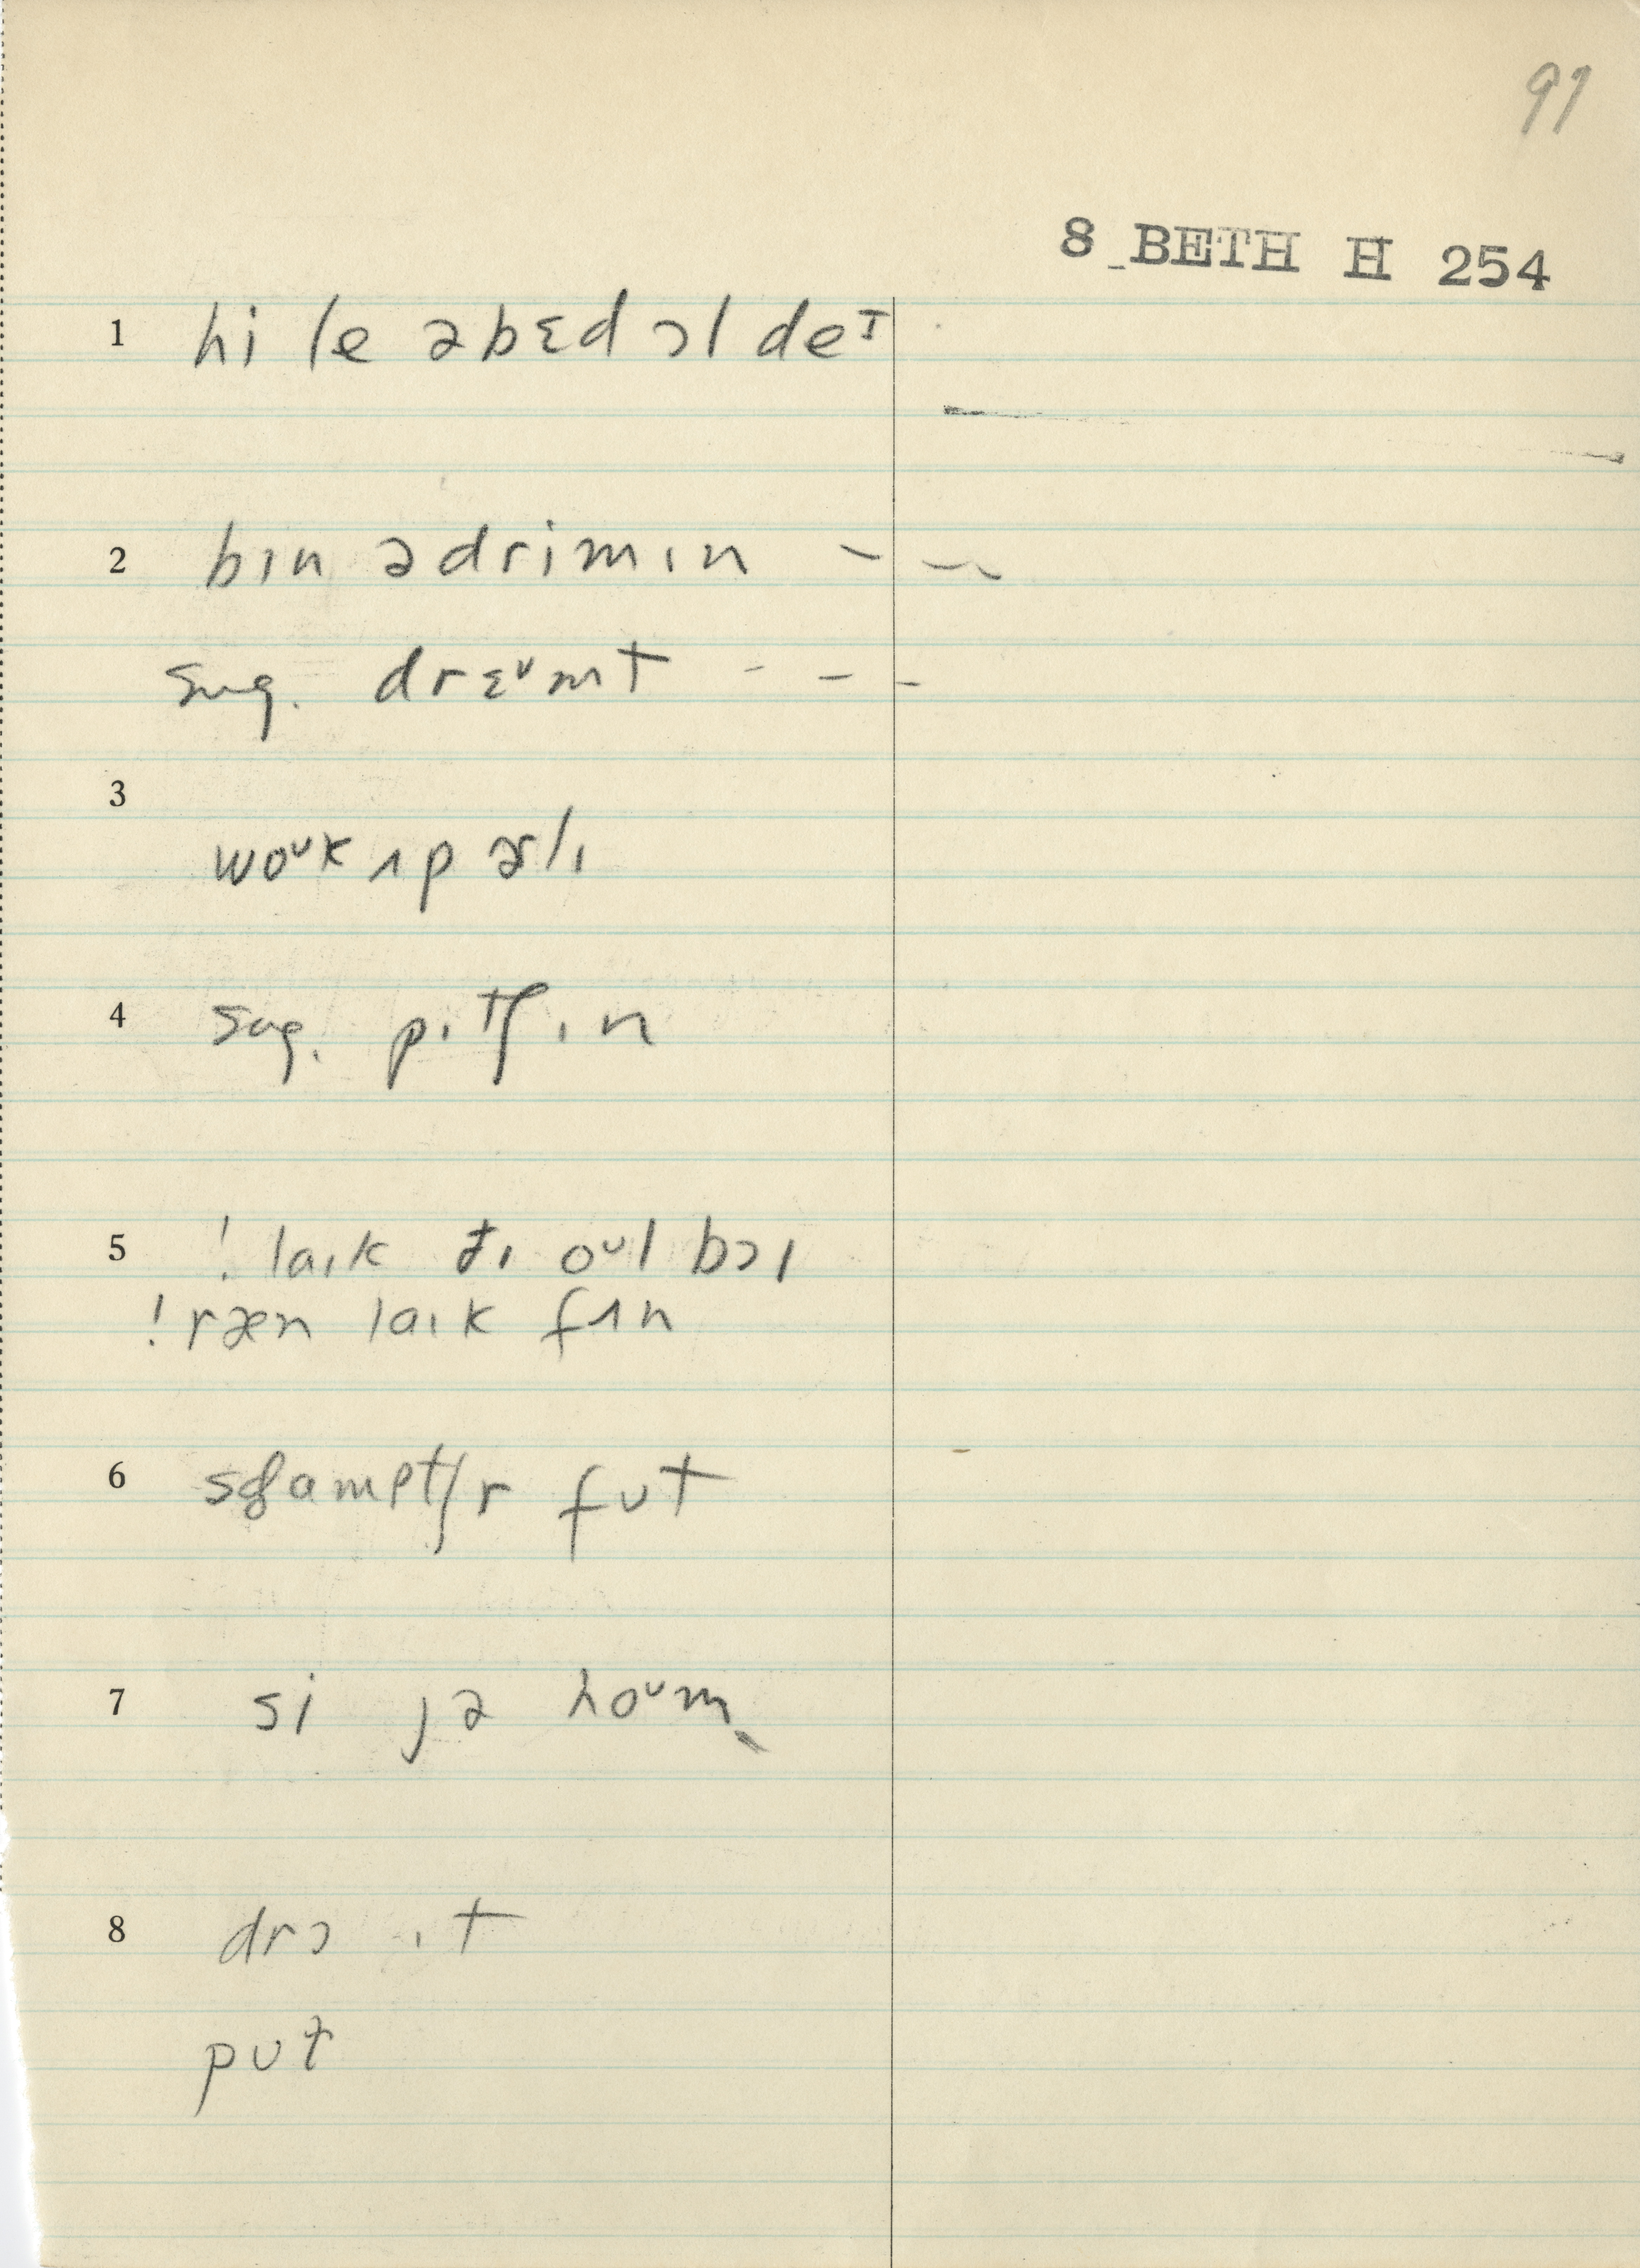 91
8 BETH H 254
1 hi le əbɛd ɔl deɪ
2 bɪn ədrimɪn - - -
sug. drɛᴜmt - - -
3 woᴜk ʌp ɚlɪ
4 sug. pɪtʃɪn
5 ! laɪk ðɪ oᴜl bɔɪ
! ræn laɪk fʌn
6 fʊt
7 si jə hoᴜm
8 drɔ ɪt
pʊt